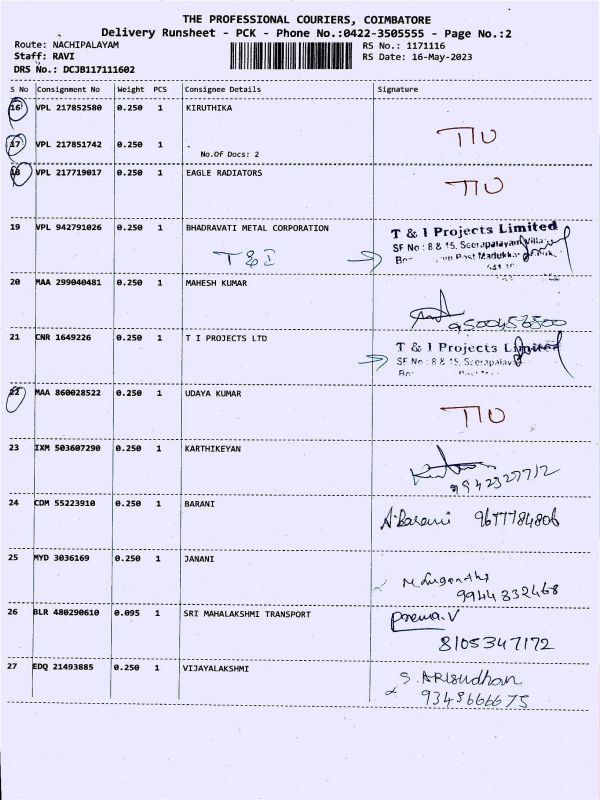 THE PROFESSIONAL COURIERS, COIMBATORE
Delivery Runsheet - PCK - Phone No.:0422-3505555 - Page No.:2
Route: NACHIPALAYAM RS No.: 1171116
Staff: RAVI RS Date: 16-May-2023
DRS No.: DCJB117111602
S No Consignment No Weight PCS Consignee Details Signature
16 VPL 217852580 0.250 1 KIRUTHIKA
TIU
17 VPL 217851742 0.250 1 .
No.Of Docs: 2
18 VPL 217719017 0.250 1 EAGLE RADIATORS
TIU
19 VPL 942791026 0.250 1 BHADRAVATI METAL CORPORATION T & I Projects Limited
T & I SF No : 8 & 15, Seerapalayam
Post
20 MAA 299040481 0.250 1 MAHESH KUMAR
9500456500
21 CNR 1649226 0.250 1 T I PROJECTS LTD T & I Projects Limited
SF No : 8 & 15, Seerapalayam
22 MAA 860028522 0.250 1 UDAYA KUMAR
TIU
23 IXM 503607290 0.250 1 KARTHIKEYAN
9942327712
24 CDM 55223910 0.250 1 BARANI A.Barani 9677784806
25 MYD 3036169 0.250 1 JANANI
9944332468
26 BLR 480290610 0.095 1 SRI MAHALAKSHMI TRANSPORT Prema.V
8105347172
27 EDQ 21493885 0.250 1 VIJAYALAKSHMI
9345666675